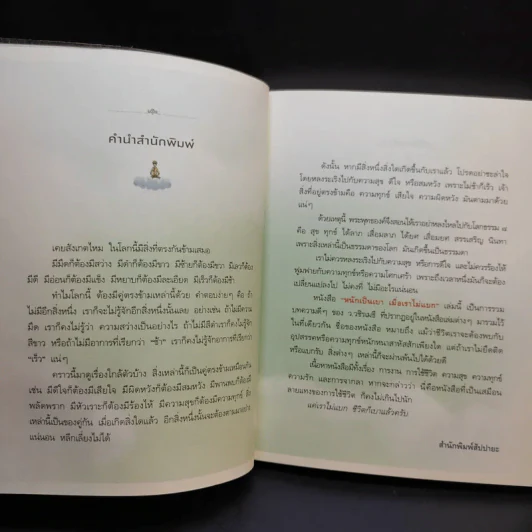 คำนำสำนักพิมพ์
เคยสังเกตไหม ในโลกนี้มีสิ่งที่ตรงกันข้ามเสมอ
มีมืดก็ต้องมีสว่าง มีดำก็ต้องมีขาว มีซ้ายก็ต้องมีขวา มีเลวก็ต้อง
มีดี มีอ่อนก็ต้องมีแข็ง มีหยาบก็ต้องมีละเอียด มีเร็วก็ต้องมีช้า
ทำไมโลกนี้ ต้องมีคู่ตรงข้ามเหล่านี้ด้วย คำตอบง่ายๆ คือ ถ้า
ไม่มีอีกสิ่งหนึ่ง เราก็จะไม่รู้จักอีกสิ่งหนึ่งนั้นเลย อย่าง ถ้าไม่มีความ
มืด เราก็คงไม่รู้ว่า ความสว่างเป็นอย่างไร ถ้าไม่มีสีดำเราก็คงไม่รู้จัก
สีขาว หรือถ้าไม่มีอาการที่เรียกว่า "ช้า" เราก็คงไม่รู้จักอาการที่เรียกว่า
"เร็ว" แน่ๆ
คราวนี้มาดูเรื่องใกล้ตัวบ้าง สิ่งเหล่านี้ก็เป็นคู่ตรงข้ามเหมือนกัน
เช่น มีดีใจก็ต้องมีเสียใจ มีผิดหวังก็ต้องมีสมหวัง มีพานพบก็ต้องมี
พลัดพราก มีหัวเราะก็ต้องมีร้องไห้ มีความสุขก็ต้องมีความทุกข์
เหล่านี้เป็นของคู่กัน เมื่อเกิดสิ่งใดแล้ว อีกสิ่งหนึ่งนั้นจะต้องตามมาอย่าง
แน่นอน หลีกเลี่ยงไม่ได้
ดังนั้น หากมีสิ่งหนึ่งสิ่งใดเกิดขึ้นกับเราแล้ว โปรดอย่าชะล่าใจ
โดยหลงระเริงไปกับความสุข ดีใจ หรือสมหวัง เพราะไม่ช้าก็เร็ว เจ้า
สิ่งที่อยู่ตรงข้ามคือ ความทุกข์ เสียใจ ความผิดหวัง มันตามมาด้วย
แน่ๆ
ด้วยเหตุนี้ พระพุทธองค์จึงสอนให้เราอย่าหลงใหลไปกับโลกธรรม ๘
คือ สุข ทุกข์ ได้ลาภ เสื่อมลาภ ได้ยศ เสื่อมยศ สรรเสริญ นินทา
เพราะสิ่งเหล่านี้เป็นธรรมดาของโลก มันเกิดขึ้นเป็นธรรมดา
เราไม่ควรหลงระเริงไปกับความสุข หรือการดีใจ และไม่ควรร้องไห้
ฟูมฟายกับความทุกข์หรือความโศกเศร้า เพราะถึงเวลาหนึ่งมันก็จะต้อง
เปลี่ยนแปลงไป ไม่คงที่ ไม่มีอะไรแน่นอน
หนังสือ "หนักเป็นเบา เมื่อเราไม่แบก" เล่มนี้ เป็นการรวม
บทความดีๆ ของ ว.วชิรเมธี ที่ปรากฏอยู่ในหนังสือเล่มต่างๆ มารวมไว้
ในที่เดียวกัน ชื่อของหนังสือ หมายถึง แม้ว่าชีวิตเราจะต้องพบกับ
อุปสรรคหรือความทุกข์หนักหนาสาหัสสักเพียงใด แต่ถ้าเราไม่ยึดติด
หรือแบกรับ สิ่งต่างๆ เหล่านี้ก็จะผ่านพ้นไปได้ด้วยดี
เนื้อหาหนังสือมีทั้งเรื่อง การงาน การใช้ชีวิต ความสุข ความทุกข์
ความรัก และการจากลา หากจะกล่าวว่า นี่คือหนังสือที่เป็นเสมือน
ลายแทงของการใช้ชีวิต ก็คงไม่เกินไปนัก
แค่เราไม่แบก ชีวิตก็เบาแล้วครับ
สำนักพิมพ์สัปปายะ